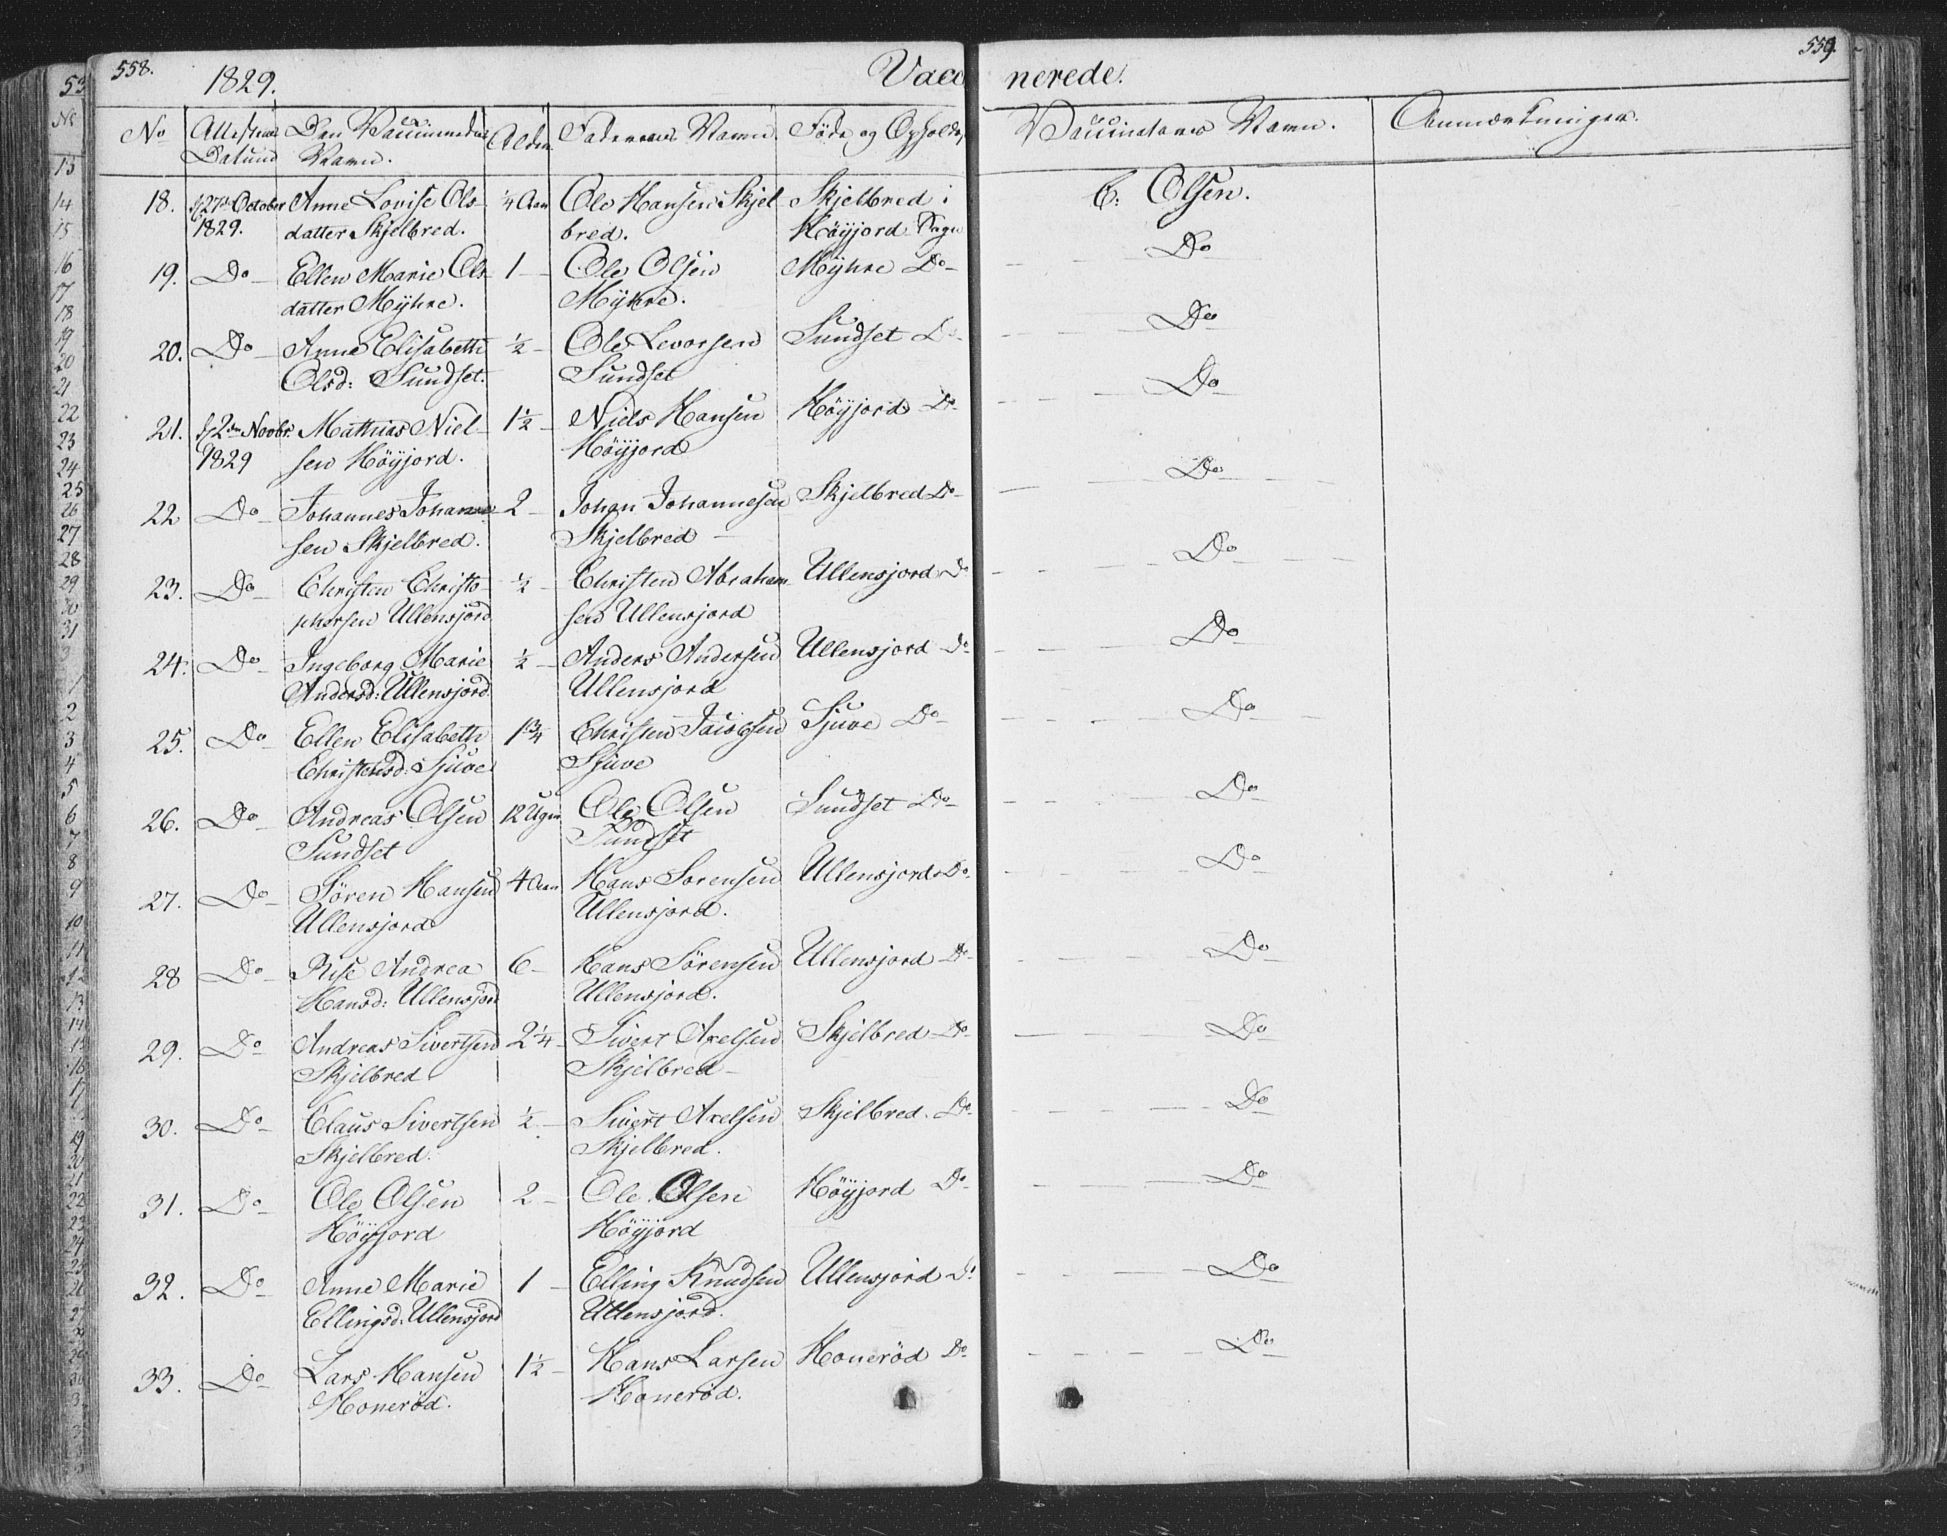 558.
1829.
Vacc
nerede.
559.
No Attestens Datum Den Vaccineredes Navn. Alder. Faderens Navn. Føde og Opholds Vaccinateurs Navn. Anmærkninger.
18. d 27de October Anne Lovise Ols- 1/4 Aar Ole Hansen Skjel Skjelbred i C: Olsen.
1829. datter Skjelbred. bred. Høÿjord Sogn
19. Do Ellen Marie Ols- 1 - Ole Olsen Mÿhre Do - Do
datter Mÿhre. Mÿhre.
20. Do Anne Elisabeth 1/2 - Ole Levorsen Sundset Do Do
Olsd: Sundset. Sundset
21. d 2den Novbr. Mathias Niel- 1 1/2 - Niels Hansen Høÿjord Do Do
1829 sen Høÿjord. Høÿjord
22 Do Johannes Johanne 2 - Johan Johannesen Skjelbred Do - Do
sen Skjelbred. Skjelbred -
23. Do Christen Christo- 1/2 - Christen Abraham Ullensjord Do Do
phersen Ullensjord sen Ullensjord
24. Do Ingeborg Marie 1/2 - Anders Andersen Ullensjord Do Do
Andersd: Ullensjord. Ullensjord
25. Do Ellen Elisabeth 1 3/4 Christen Jacobsen Sjuve Do - Do
Christensd: Sjuve Sjuve
26. Do Andreas Olsen 12 Uger Ole Olsen Sundset Do - Do
Sundset Sundset
27. Do Søren Hansen 4 Aar Hans Sorensen Ullensjord Do Do
Ullensjord Ullensjord.
28 Do Andrea 6 - Hans Sörensen Ullensjord Do Do
Hansd: Ullensjord Ullensjord.
29. Do Andreas Sivertsen 2 1/4 - Sivert Axelsen Skjelbred Do Do
Skjelbred Skjelbred -
30. Do Claus Sivertsen 1/2 - Sivert Axelsen Skjelbred. Do Do
Skjelbred. Skjelbred.
31. Do Ole Olsen 2 - Ole Olsen Høÿjord Do Do
Høÿjord Høÿjord
32. Do Anne Marie 1 - Elling Knudsen Ullensjord Do Do
Ellingsd: Ullensjord Ullensjord.
33. Do Lars Hansen 1 1/2 - Hans Larsen Honerød Do Do
Honerød. Honerød.